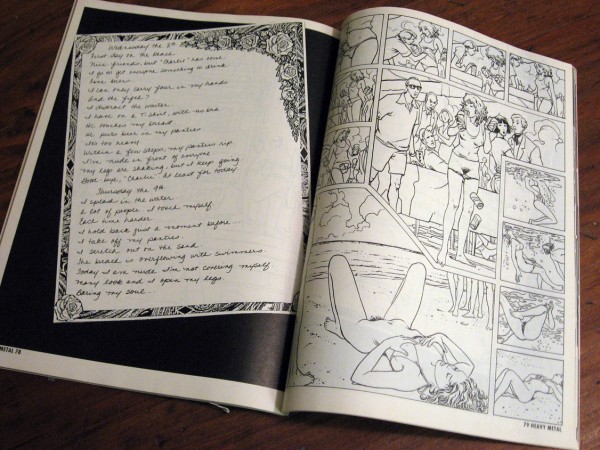 Wednesday the 8th
First day on the beach
Nice friends, but "Charlie" has come
I go to get everyone something to drink
more
I can only carry four in my hands
And the fifth?
I distract the waiter
I have on a T-shirt, with no bra
He touches my breast
He puts beer in my panties
It's too heavy
Within a few steps, my panties rip
I'm nude in front of everyone
My legs are shaking, but I keep going
Good-bye, "Charlie", at least for today
Thursday the 9th
I spread in the water
A lot of people I touch myself
Each time harder
I hold back just a moment before...
I take off my panties
I stretch out on the sand
The beach is overflowing with swimmers
Today I am nude I'm not covering myself
Many look and I open my legs
Baring my soul...
METAL 78
79 HEAVY METAL